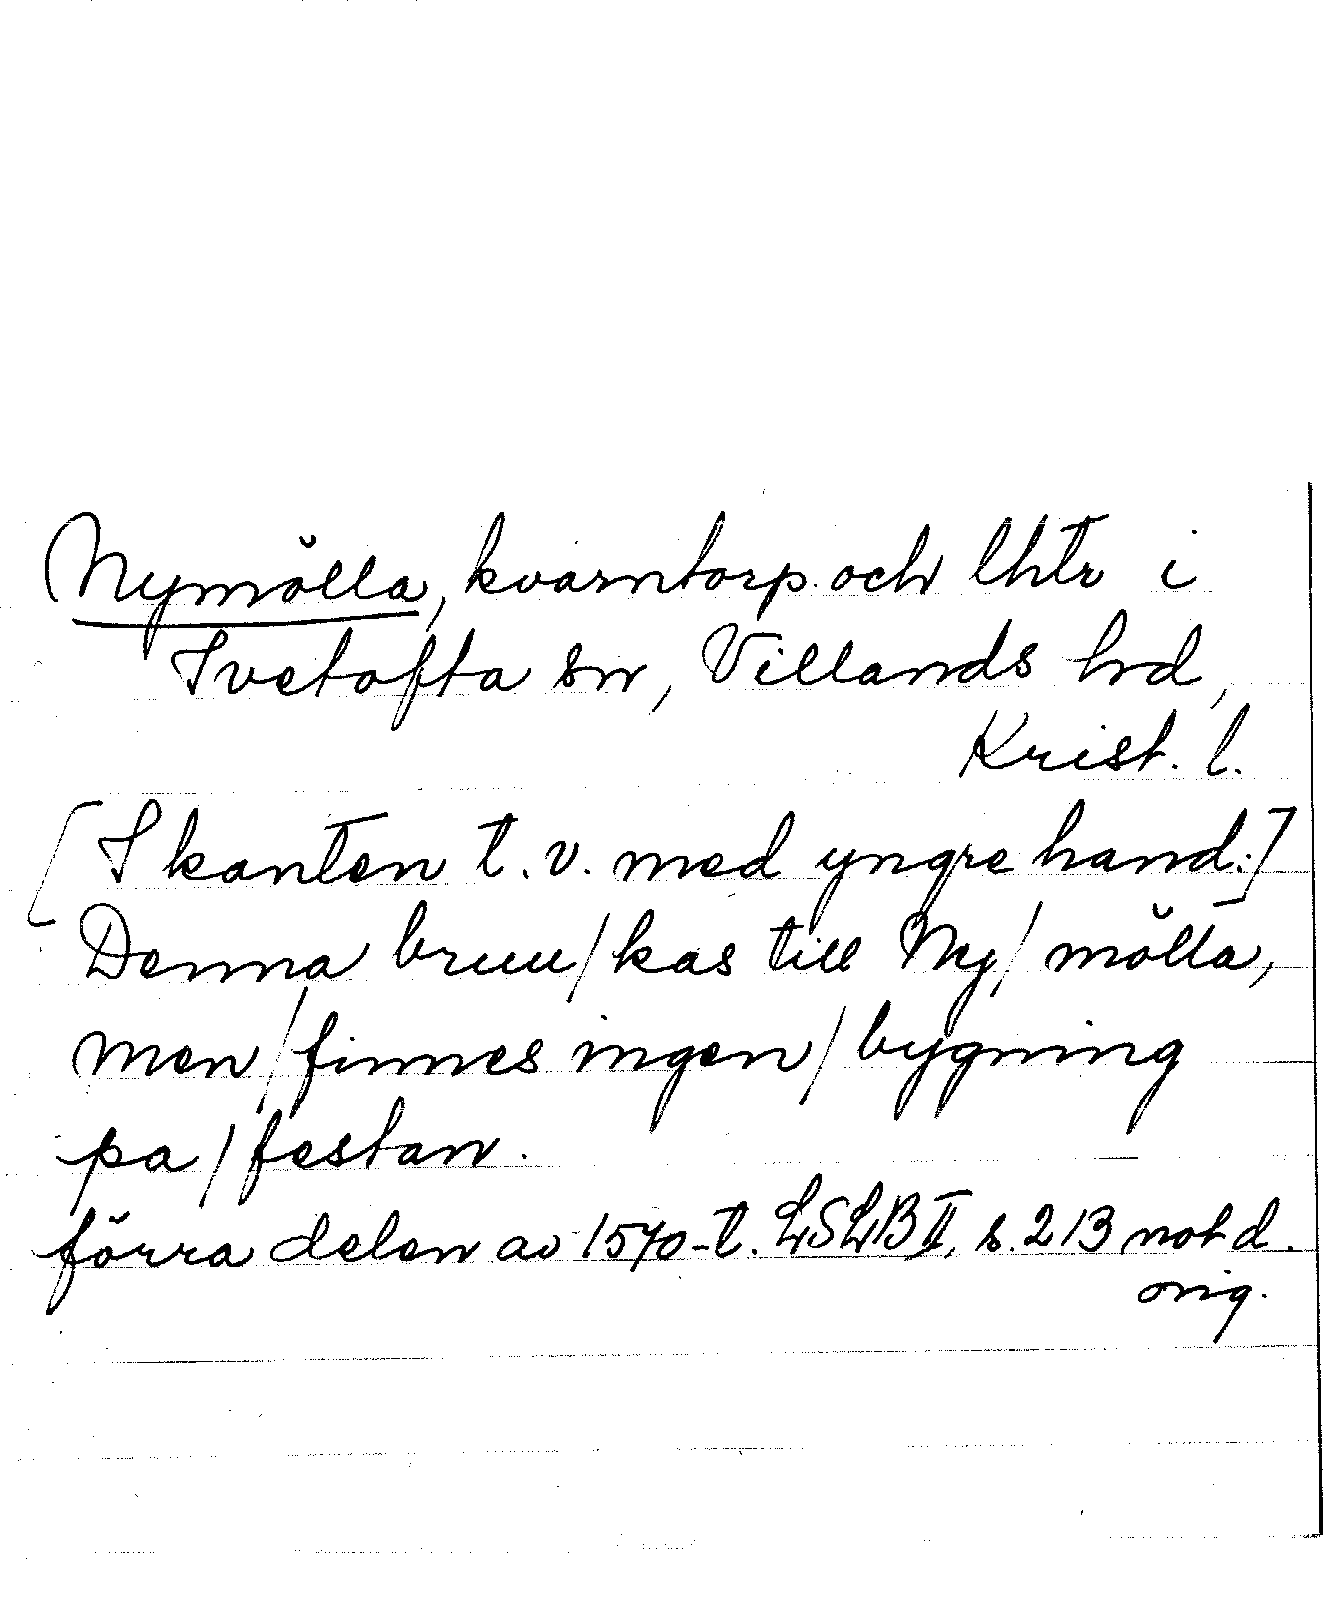 Nymölla, kvarntorp och lhtr i
Ivetofta sn, Villands hd,
Krist. l.
[I kanten t.v. med yngre hand:]
Denna bruu/kas till Ny/mölla,
men/finnes ingen/bygning
pa/festan.
förra delen av 1570-t. LSLB II, s. 213 not d.
orig.